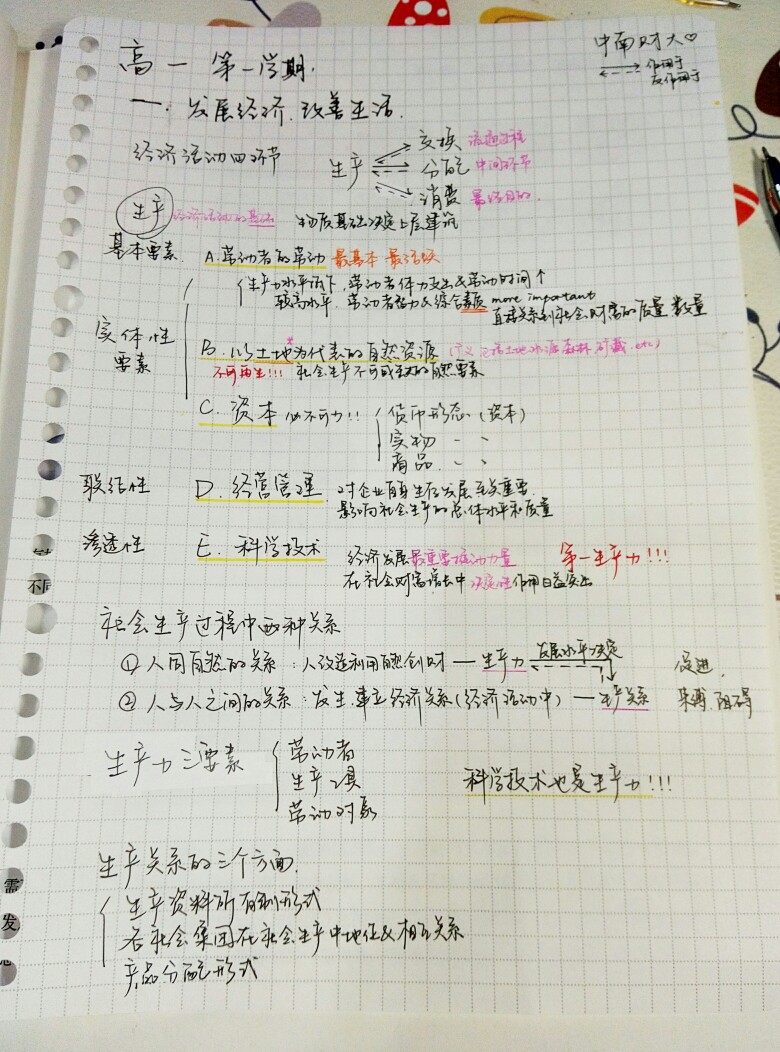 中南财大♡
作用于
反作用于
高一 第一学期.
一. 发展经济.改善生活.
经济活动四环节
生产
交换 流通过程
分配 中间环节
消费 最终目的.
生产 经济活动的基础 物质基础决定上层建筑
基本要素. A.劳动者的劳动 最基本 最活跃
生产力水平低下,劳动者体力支出&劳动时间↑
较高水平. 劳动者智力&综合素质 more important
直接关系到社会财富的质量 数量
实体性
要素
B. 以土地为代表的自然资源 (广义 包括土地水源森林矿藏.etc)
不可再生!!! 社会生产不可或缺的自然要素
C. 资本 必不可少!!
货币形态 (资本)
实物 〃
商品. 〃
联结性 D. 经营管理 对企业自身生存发展至关重要
影响社会生产的总体水平和质量
渗透性 E. 科学技术 经济发展最重要推动力量 第一生产力!!!
在社会财富增长中 决定性作用日益突出
社会生产过程中两种关系
① 人同自然的关系: 人改造利用自然创财 — 生产力 发展水平决定 促进.
② 人与人之间的关系: 发生.建立经济关系(经济活动中) — 生产关系 束缚.阻碍
生产力三要素
劳动者
生产工具
劳动对象
科学技术也是生产力!!!
生产关系的三个方面.
生产资料所有制形式
各社会集团在社会生产中地位&相互关系
产品分配形式
需
发